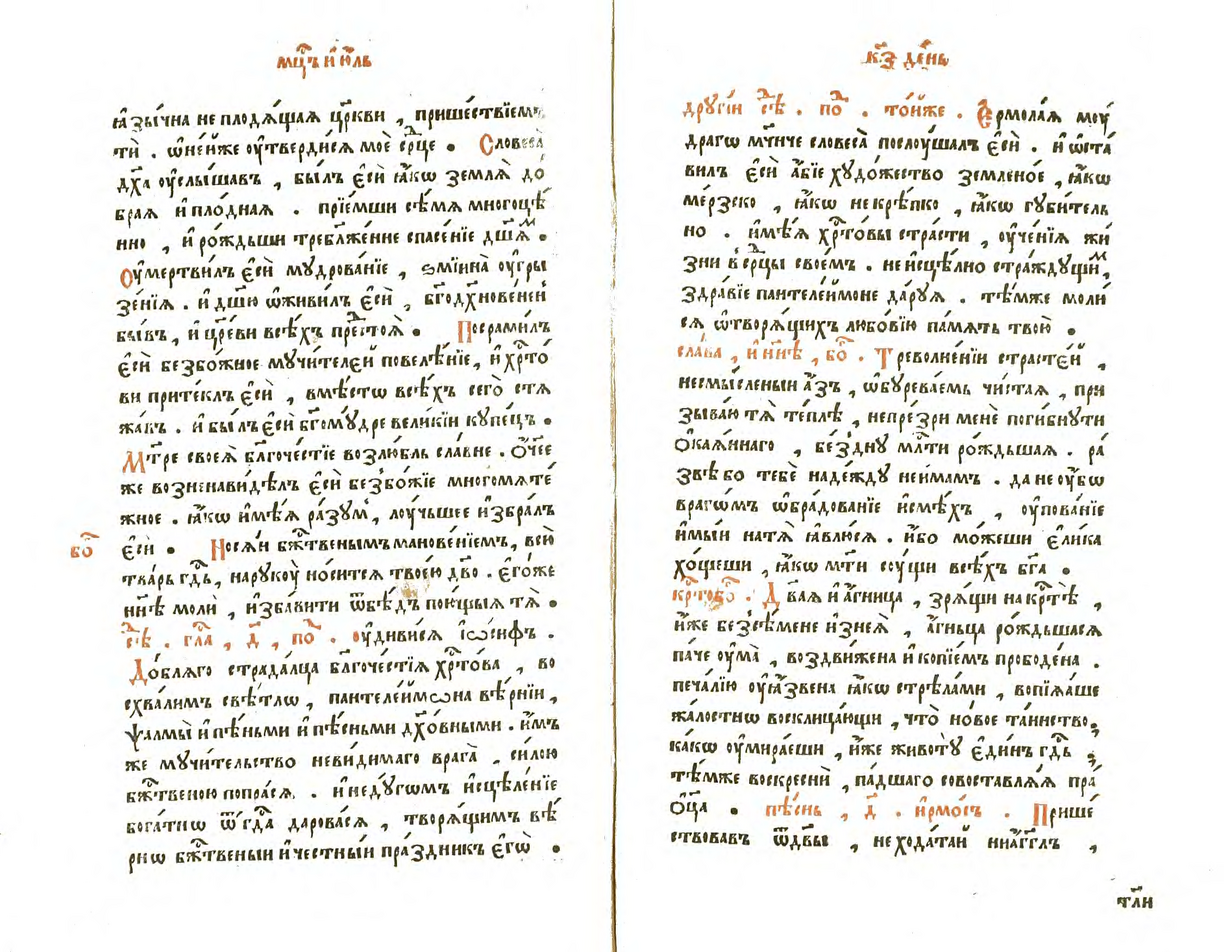 мц҃ъ и҆ ю҆́ль
ꙗ҆зы́чна не плодѧ́щаѧ цр҃кви , прише́ствїемъ
тѝ . ѡ҆ не́йже ᲂу҆тверди́сѧ моѐ ср҃це . Словеса̀
дх҃а ᲂу҆слы́шавъ , бы́лъ є҆сѝ ꙗ҆́кѡ землѧ̀ до
браѧ и҆ пло́дная . прїе́мши сѣ́мѧ многоцѣ́
нно , и҆ ро́ждьши требл҃же́ние спасе́нїе дш҃а́мъ .
Оу҆мертви́лъ є҆сѝ мудрова́нїе , ѕмїи́на ᲂу҆гры
зе́нїѧ . и҆ дш҃ю ѡ҆живи́лъ є҆сѝ , бг҃одх҃нове́нен
бы́въ , и҆ цр҃еви всѣ́хъ предстоѧ̀ . Посрами́лъ
є҆сѝ безбо́жное мучи́телей повелѣ́нїе , и҆ хрⷭ҇то́
ви прите́клъ є҆сѝ , вмѣ́стѡ всѣ́хъ сего̀ стѧ
жа́въ . и҆ бы́лъ є҆сѝ бг҃ому́дре вели́кїи купе́цъ .
Мт҃ре своеѧ̀ бл҃гоче́стїе возлю́бль сла́вне . Ѻ҆́чее
же возненави́дѣлъ є҆сѝ безбо́жїе многомѧте́
жное . ꙗ҆́кѡ и҆мѣ́ѧ ра́зумъ , лоу́чьшее и҆збра́лъ
бо
є҆сѝ . Носѧ́и бжⷭ҇твенымъ манове́нїемъ , всю̀
тва́рь гдⷭ҇ь , на рукоу̀ но́ситсѧ твоє́ю дв҃о . є҆го́же
ны́нѣ молѝ , и҆зба́вити ѿ бѣ́дъ пою́щыѧ тѧ̀ .
сѣ . гла , д҃ , по . оу҆диви́сѧ і҆ѡ́сифъ .
До́бляго страда́лца бл҃гоче́стїѧ хрⷭ҇то́ва , во
схва́лимъ свѣ́тлѡ , пантеле́ймѡна вѣ́рнїи ,
ѱалмы̀ и҆ пѣ́ньми и҆ пѣ́сньми дх҃о́вными . и҆́мъ
же мучи́тельство неви́димаго врага̀ , си́лою
бжⷭ҇твеною попра́сѧ . и҆ неду́гѡмъ и҆сцѣле́нїе
бога́тнѡ ѿ гдⷭ҇а дарова́сѧ , творѧ́щимъ вѣ́
рнѡ бжⷭ҇твеныи и҆ че́стныи пра́здникъ є҆гѡ̀ .
к҃з де́нь
други́и сѣ . по . то́иже . Є҆рмола́ѧ моу́
драго мч҃нче словеса̀ послоу́шалъ є҆сѝ . и҆ ѡ҆ста́
вилъ є҆сѝ а҆́бїе худо́жество земле́ное , ꙗ҆́кѡ
ме́рзско , ꙗ҆́кѡ не крѣ́пко , ꙗ҆́кѡ губи́тель
но . и҆мѣ́ѧ хрⷭ҇то́вы стра́сти , ᲂу҆че́нїѧ жи́
зни в ср҃цы свое́мъ . не и҆сцѣ́лно стра́ждущимъ ,
здра́вїе пантеле́ймоне да́руѧ . тѣ́мже моли́
сѧ ѡ҆ творѧ́щихъ любо́вїю па́мѧть твою̀ .
сла́ва , и҆ ны́нѣ , бо . Треволне́нїи страсте́й ,
несмы́сленыи а҆́зъ , ѡ҆буреваемь чи́стаѧ , при
зыва́ю тѧ̀ те́плѣ , не пре́зри менѐ поги́бнути
Ѻ҆каѧ́ннаго , бе́здну млⷭ҇ти ро́ждьшаѧ . ра́
звѣ бо тебѐ наде́жду не и҆́мамъ . да не оу҆́бѡ
врагѡ́мъ ѡ҆бра́дованїе и҆ смѣ́хъ , ᲂу҆пова́нїе
и҆мы́и на тѧ̀ ꙗ҆влю́сѧ . и҆́бо мо́жеши є҆ли́ка
хо́щеши , ꙗ҆́кѡ мт҃и соу́щи всѣ́хъ бг҃а .
крⷭ҇тобо . Двⷭ҇аѧ и҆ а҆́гница , зрѧ́щи на крⷭ҇тѣ̀ ,
и҆́же без̾ сѣ́мене и҆з̾ неѧ̀ , а҆́гньца ро́ждьшасѧ
па́че оу҆ма̀ , воздви́жена и҆ копїе́мъ прободе́на .
печа́лїю оу҆ѧ҆́звена ꙗ҆́кѡ стрѣла́ми , вопїѧ́ше
жа́лостнѡ восклица́ющи , что̀ но́вое та́инство ,
ка́кѡ ᲂу҆мира́еши , и҆́же животу̀ є҆ди́нъ гдⷭ҇ь ;
тѣ́мже воскреснѝ , па́дшаго совоставлѧ́ѧ пра́
Ѻ҆ц҃а . пѣ́снь , д҃ . и҆рмо́съ . Прише́
ствовавъ ѿ дв҃ы , не хода́таи ни а҆́гг҃лъ ,
тл҃и